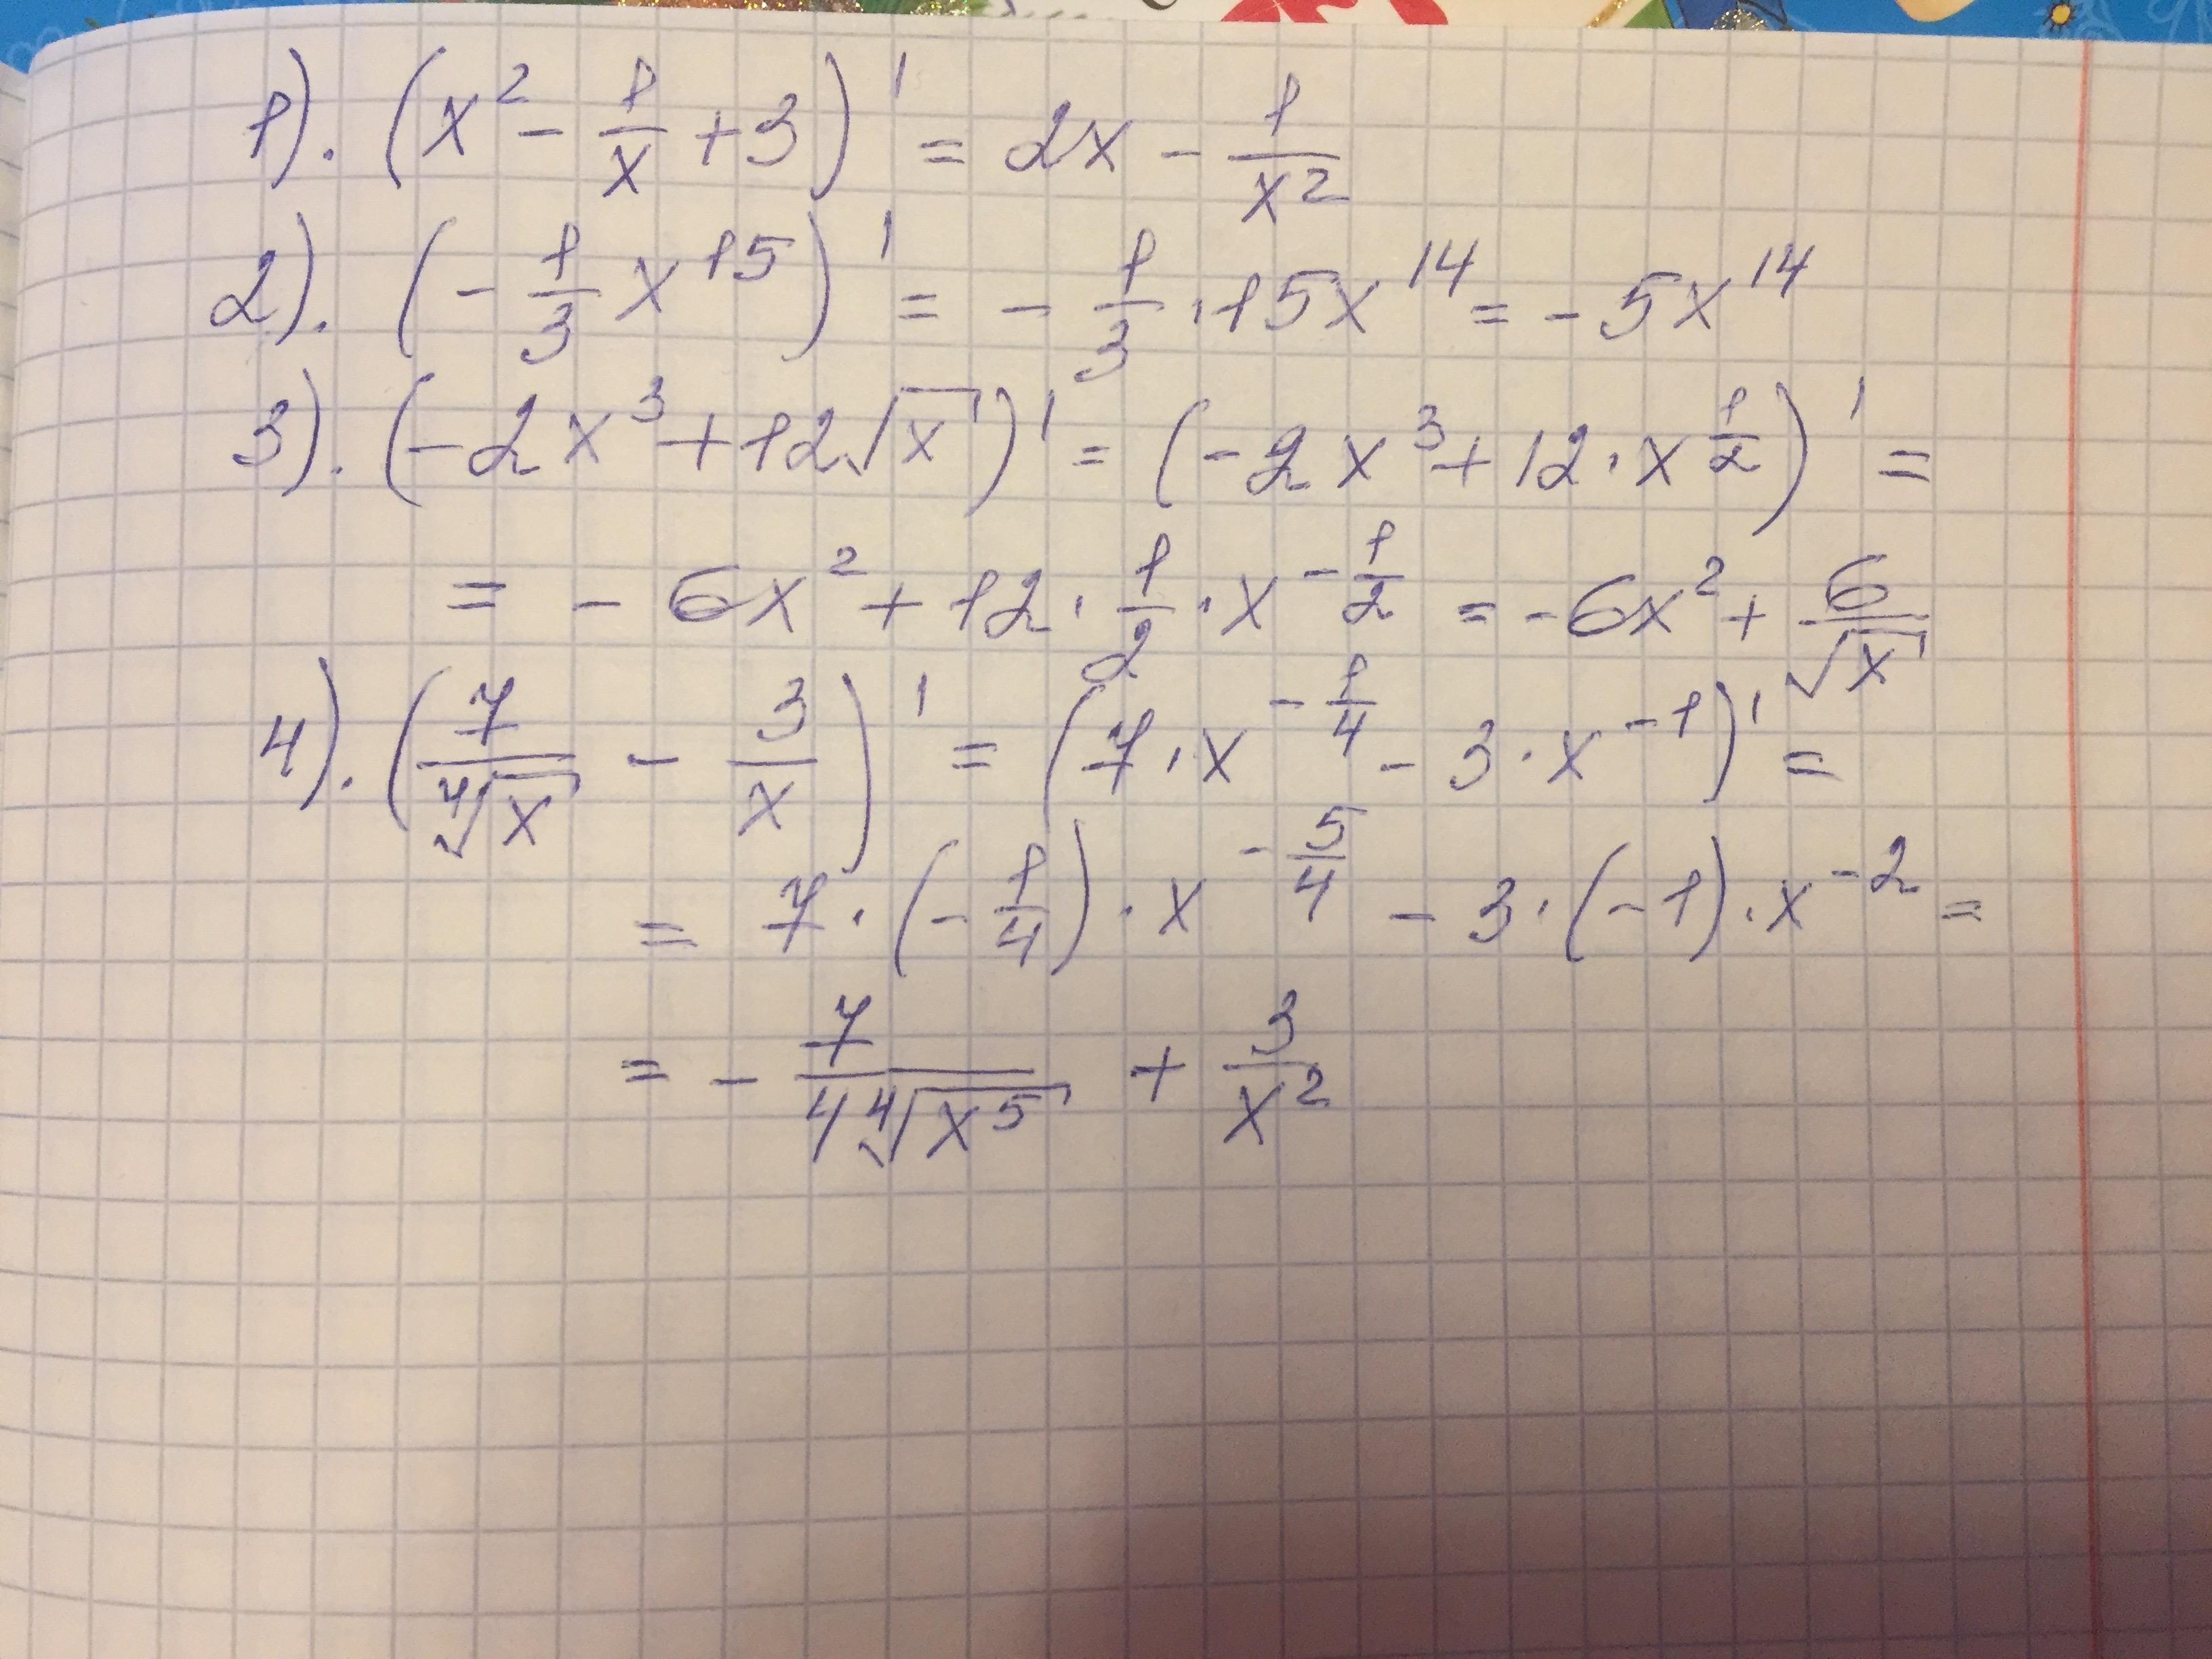 1). (x² - 1/x + 3)' = 2x - 1/x²
2). (- 1/3 x¹⁵)' = - 1/3 · 15x¹⁴ = - 5x¹⁴
3). (-2x³ + 12√x)' = (-2x³ + 12 · x^(1/2))' =
= - 6x² + 12 · 1/2 · x^(-1/2) = -6x² + 6/√x
4). (7/⁴√x - 3/x)' = (7 · x^(-1/4) - 3 · x⁻¹)' =
= 7 · (-1/4) · x^(-5/4) - 3 · (-1) · x⁻² =
= - 7/(4 ⁴√x⁵) + 3/x²